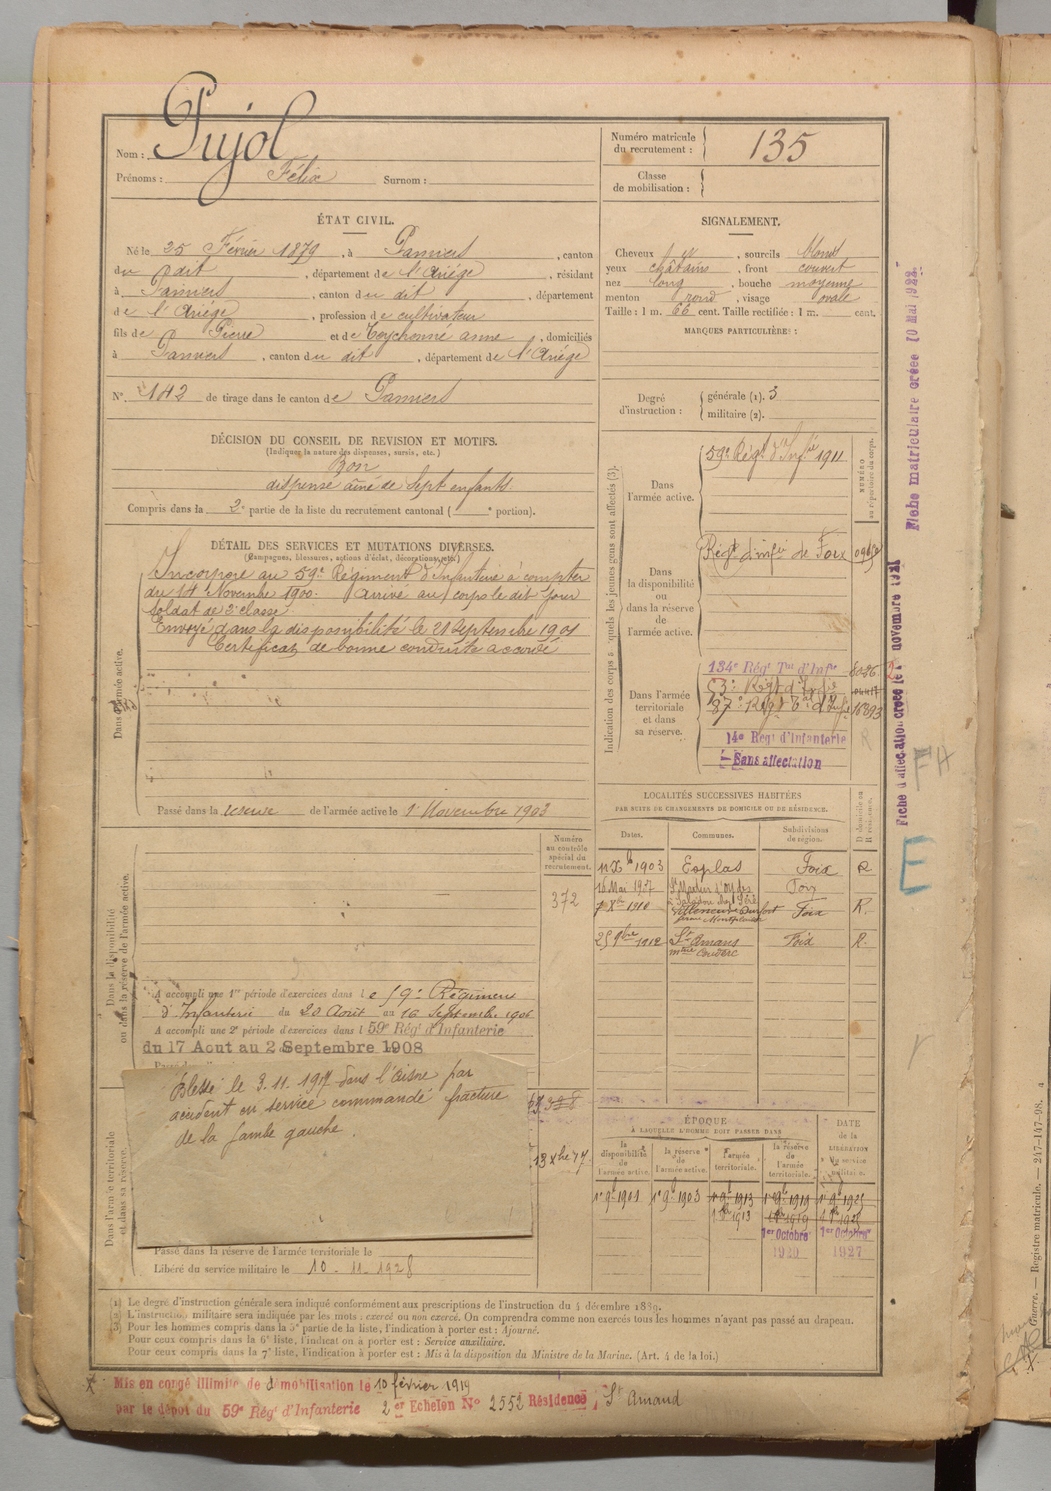 Nom : Pujol
Prénoms : Félix Surnom :
Numéro matricule du recrutement : 135
Classe de mobilisation :
ÉTAT CIVIL.
Né le 25 Février 1879, à Pamiers, canton
du dit, département de l'Ariège, résidant
à Pamiers, canton du dit, département
de l'Ariège, profession de cultivateur
fils de Pierre et de Teychonné anne, domiciliés
à Pamiers, canton du dit, département de l'Ariège
N° 142 de tirage dans le canton de Pamiers
SIGNALEMENT.
Cheveux, sourcils blond
yeux châtains, front couvert
nez long, bouche moyenne
menton rond, visage ovale
Taille : 1 m. 66 cent. Taille rectifiée : 1 m. cent.
MARQUES PARTICULIÈRES :
Degré d'instruction : générale (1). 3
militaire (2).
DÉCISION DU CONSEIL DE REVISION ET MOTIFS.
(Indiquer la nature des dispenses, sursis, etc.)
Bon
dispensé aîné de sept enfants.
Compris dans la 2e partie de la liste du recrutement cantonal ( e portion).
DÉTAIL DES SERVICES ET MUTATIONS DIVERSES.
(Campagnes, blessures, actions d'éclat, décorations, etc.)
Dans l'armée active.
Incorporé au 59e Régiment d'Infanterie à compter
du 14 Novembre 1900. Arrivé au corps le dit jour
soldat de 2e classe
Envoyé dans la disponibilité le 21 Septembre 1901
Certificat de bonne conduite accordé
Passé dans la réserve de l'armée active le 1er Novembre 1903
Indication des corps auxquels les jeunes gens sont affectés (3).
NUMÉRO au répertoire du corps.
Dans l'armée active.
59e Régt d'Infie 1911
Dans la disponibilité ou dans la réserve de l'armée active.
Régt d'infie de Foix
Dans l'armée territoriale et dans sa réserve.
134e Régt Tal d'Infie
53e Régt d'Infie
87e Régt Tal d'Infie
14e Régt d'Infanterie
Sans affectation
LOCALITÉS SUCCESSIVES HABITÉES
PAR SUITE DE CHANGEMENTS DE DOMICILE OU DE RÉSIDENCE.
Dates. Communes. Subdivisions de région. D domicile ou R résidence.
1903 Esplas Foix R
16 Mai 1907 Foix
7 Xbre 1910 Foix R.
25 9bre 1912 St Amans Foix R.
Dans la disponibilité ou dans la réserve de l'armée active.
Numéro au contrôle spécial du recrutement.
372
A accompli une 1re période d'exercices dans le 59e Régiment
d'Infanterie du 20 Août au 16 Septembre 1906
A accompli une 2e période d'exercices dans l 59e Régt d'Infanterie
du 17 Aout au 2 Septembre 1908
Dans l'armée territoriale et dans sa réserve.
Blessé le 3.11.1917 dans l'Aisne par
accident en service commandé fracture
de la jambe gauche.
13 Xbre 17
Passé dans la réserve de l'armée territoriale le
Libéré du service militaire le 10-11-1928
ÉPOQUE
À LAQUELLE L'HOMME DOIT PASSER DANS
la disponibilité de l'armée active. la réserve de l'armée active. l'armée territoriale. la réserve de l'armée territoriale. DATE de la LIBÉRATION du service militaire.
1er 9b 1901 1er 9b 1903 1er 9b 1913 1er 9b 1919 1er 9b 1925
1er Octobre 1er Octobre
1920 1927
(1) Le degré d'instruction générale sera indiqué conformément aux prescriptions de l'instruction du 4 décembre 1889.
(2) L'instruction militaire sera indiquée par les mots : exercé ou non exercé. On comprendra comme non exercés tous les hommes n'ayant pas passé au drapeau.
(3) Pour les hommes compris dans la 5e partie de la liste, l'indication à porter est : Ajourné.
Pour ceux compris dans la 6e liste, l'indication à porter est : Service auxiliaire.
Pour ceux compris dans la 7e liste, l'indication à porter est : Mis à la disposition du Ministre de la Marine. (Art. 4 de la loi.)
Mis en congé illimité de démobilisation le 10 février 1919
par le dépôt du 59e Régt d'Infanterie 2er Echelon No 2552 Résidence, St Amand
Fiche matriculaire créée 10 Mai 1922
Fiche d'affectation créée le 1er novembre
FH
E
Guerre. — Registre matricule. — 247-147-98.